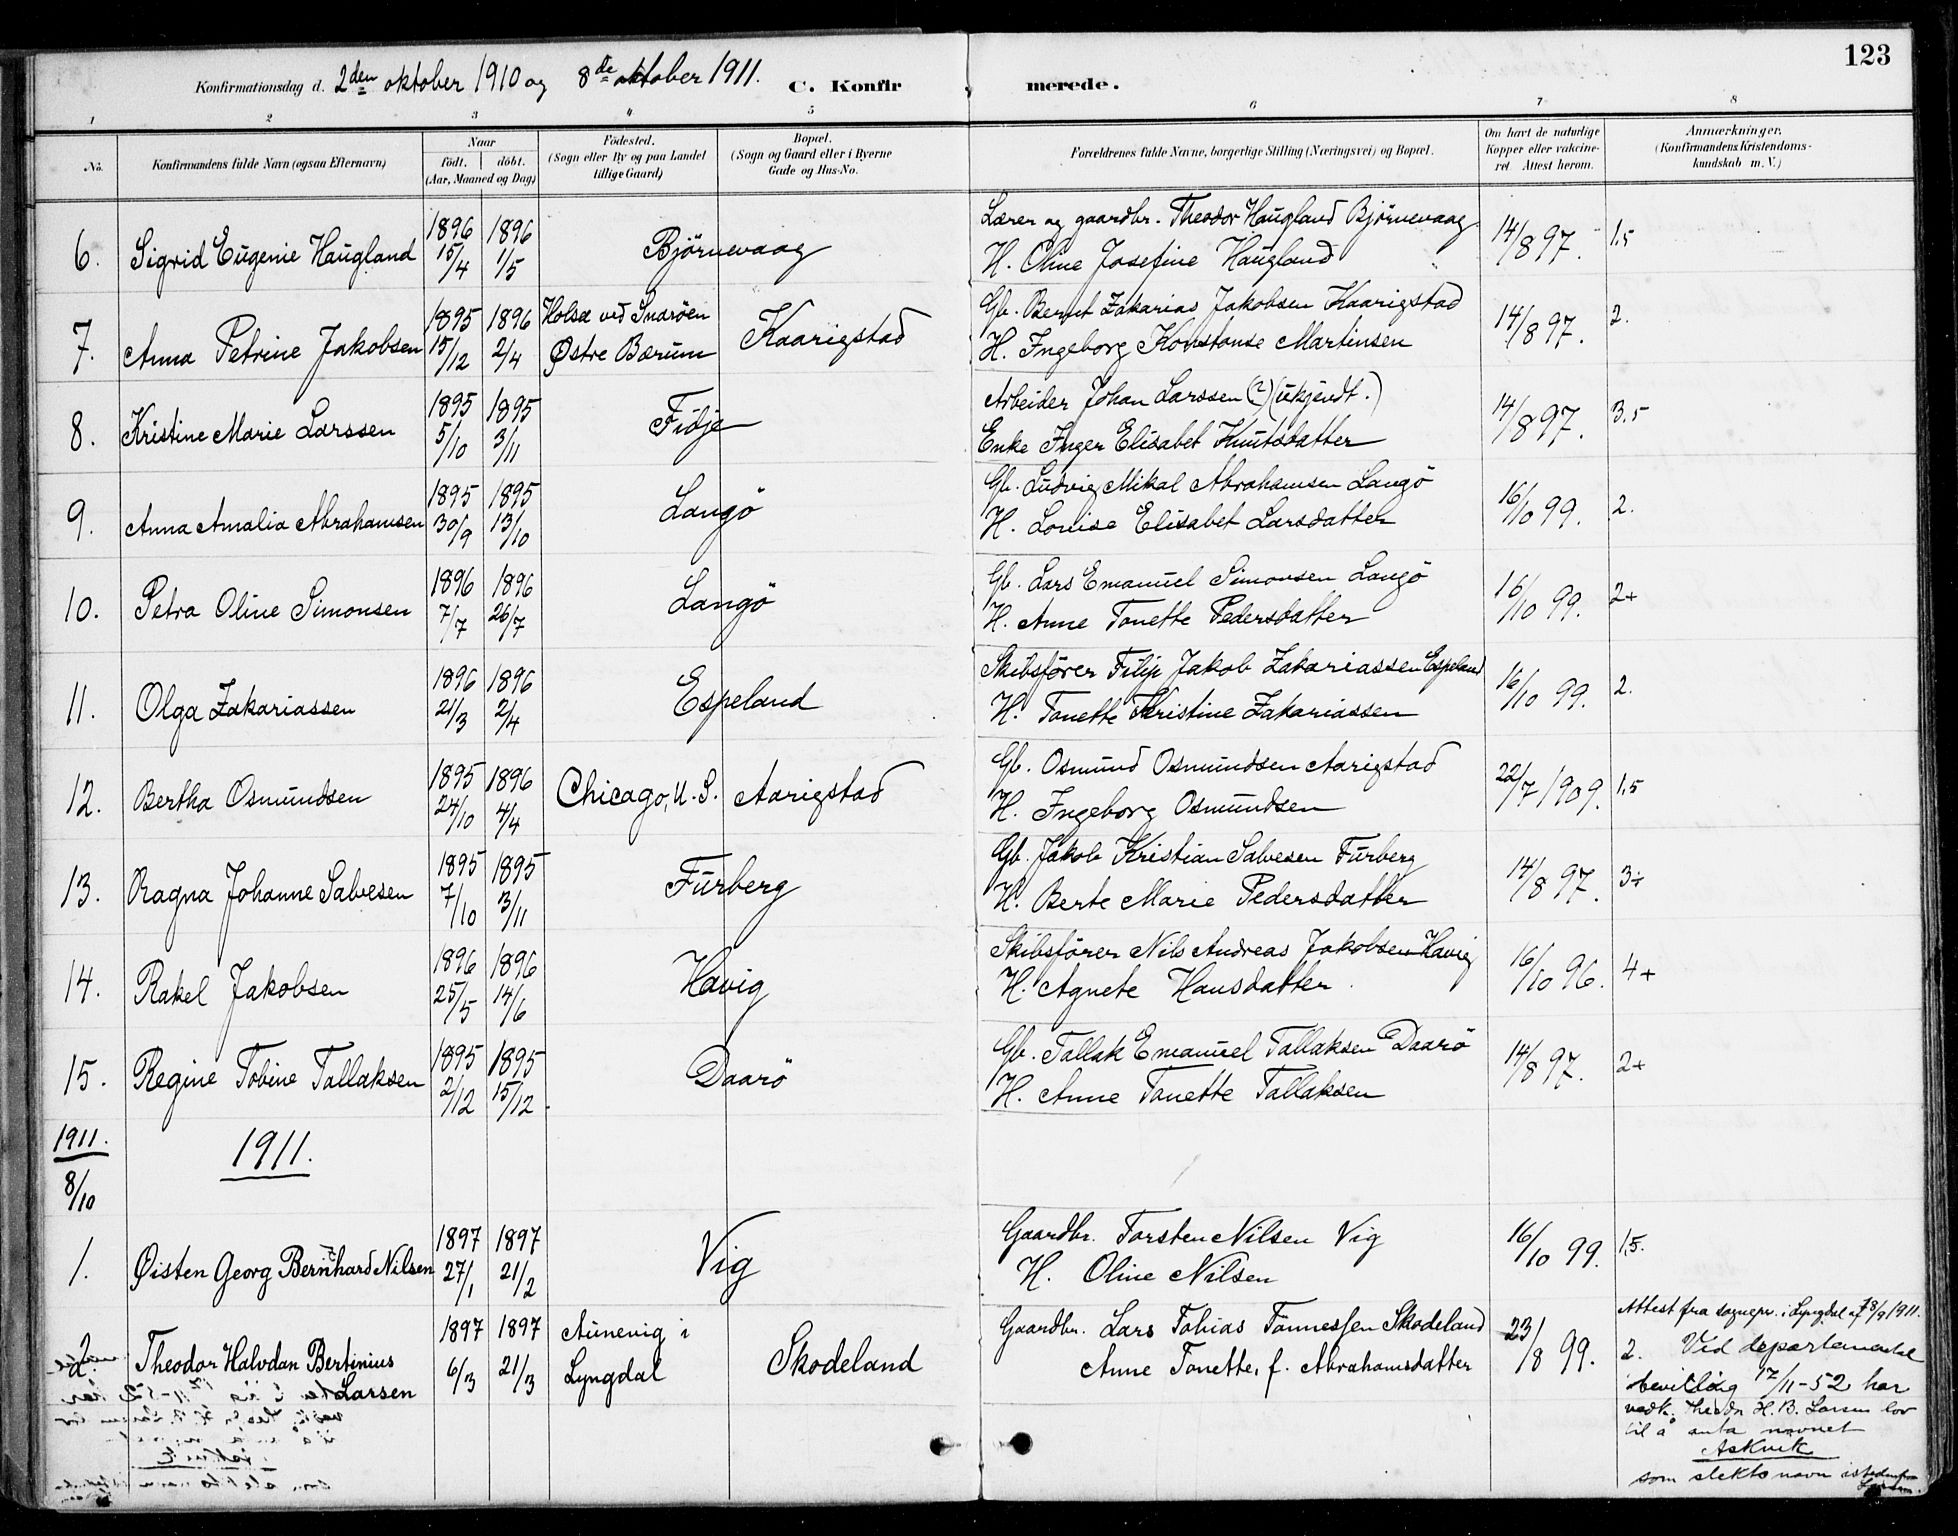 123
Konfirmationsdag d. 2den oktober 1910 og 8de oktober 1911. C. Konfirmerede.
1 2 3 4 5 6 7 8
No. Konfirmandens fulde Navn (ogsaa Efternavn)
Naar født. døbt. (Aar, Maaned og Dag)
Fødested. (Sogn eller By og paa Landet tillige Gaard)
Bopæl. (Sogn og Gaard eller i Byerne Gade og Hus-No.
Forældrenes fulde Navne, borgerlige Stilling (Næringsvei) og Bopæl.
Om havt de naturlige Kopper eller vaccineret Attest herom.
Anmærkninger. (Konfirmandens Kristendomskundskab m. V.)
6. Sigrid Eugenie Haugland 1896 15/4 1896 1/5 Björnevaag
Lærer og gaardbr. Theodor Haugland Björnevaag
H. Oline Josefine Haugland 14/8 97. 1.5
7. Anna Petrine Jakobsen 1895 15/12 1896 2/4 Holsa ved Snarøen Østre Bærum Kaarigstad
Gb. Bernt Zakarias Jakobsen Kaarigstad
H. Ingeborg Konstanse Martinsen 14/8 97. 2.
8. Kristine Marie Larssen 1895 5/10 1895 3/11 Fidje
Arbeider Johan Larssen (?) (ukjendt.)
Enke Inger Elisabet Knutsdatter 14/8 97. 3.5
9. Anna Amalia Abrahamsen 1895 30/9 1895 13/10 Langö
Gb. Ludvig Mikal Abrahamsen Langö
H. Lovise Elisabet Larsdatter 16/10 99. 2.
10. Petra Oline Simonsen 1896 7/7 1896 26/7 Langö
Gb. Lars Emanuel Simonsen Langö
H. Anne Tonette Pedersdatter 16/10 99. 2+
11. Olga Zakariassen 1896 21/3 1896 2/4 Espeland
Skibsfører Filip Jakob Zakariassen Espeland
H. Tonette Kristine Zakariassen 16/10 99. 2.
12. Bertha Osmundsen 1895 24/10 1896 4/4 Chicago, U.S. Aarigstad
Gb. Osmund Osmundsen Aarigstad
H. Ingeborg Osmundsen 22/7 1909. 1.5
13. Ragna Johanne Salvesen 1895 7/10 1895 3/11 Furberg
Gb. Jakob Kristian Salvesen Furberg
H. Berte Marie Pedersdatter 14/8 97. 3÷
14. Rakel Jakobsen 1896 25/5 1896 14/6 Havig
Skibsfører Nils Andreas Jakobsen Havig
H. Agnete Hansdatter 16/10 96. 4+
15. Regine Tobine Tallaksen 1895 2/12 1895 15/12. Daarö
Gb. Tallak Emanuel Tallaksen Daarö
H. Anne Tonette Tallaksen 14/8 97. 2+
1911. 1911.
8/10
1. Øisten Georg Bernhard Nilsen 1897 27/1 1897 21/2 Vig
Gaardbr. Torsten Nilsen Vig
H. Oline Nilsen 16/10 99. 1.5.
2. Theodor Halvdan Bertinius Larsen 1897 6/3 1897 21/3 Aunevig i Lyngdal Skodeland
Gaardbr. Lars Tobias Tönnessen Skodeland
Anne Tonette, f. Abrahamsdatter 23/8 99.
Attest fra sognepr. i Lyngdal af 8/9 1911.
2. Ved departemental
bevilling 17/11-52 har
vedk. Theodor H. B. Larsen lov
til å anta navnet
Askvik
som slektsnavn istedenfor
Larsen.